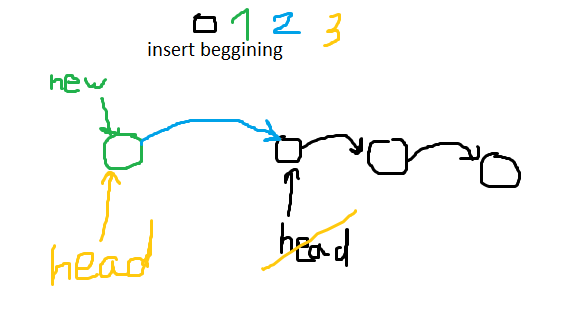 1 2 3
insert beggining
new
head
head